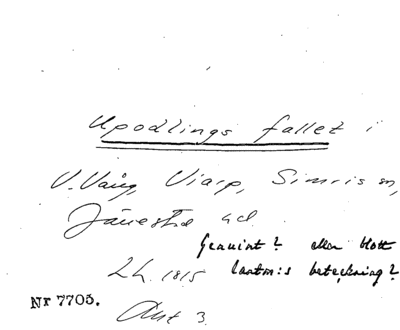 Upodlings fallet i
V. Vång, Viarp, Simris sn,
Järrestad hd.
Genuint? eller blott
Lh. 1815 lantm:s beteckning?
Nr 7705.
Ant 3.